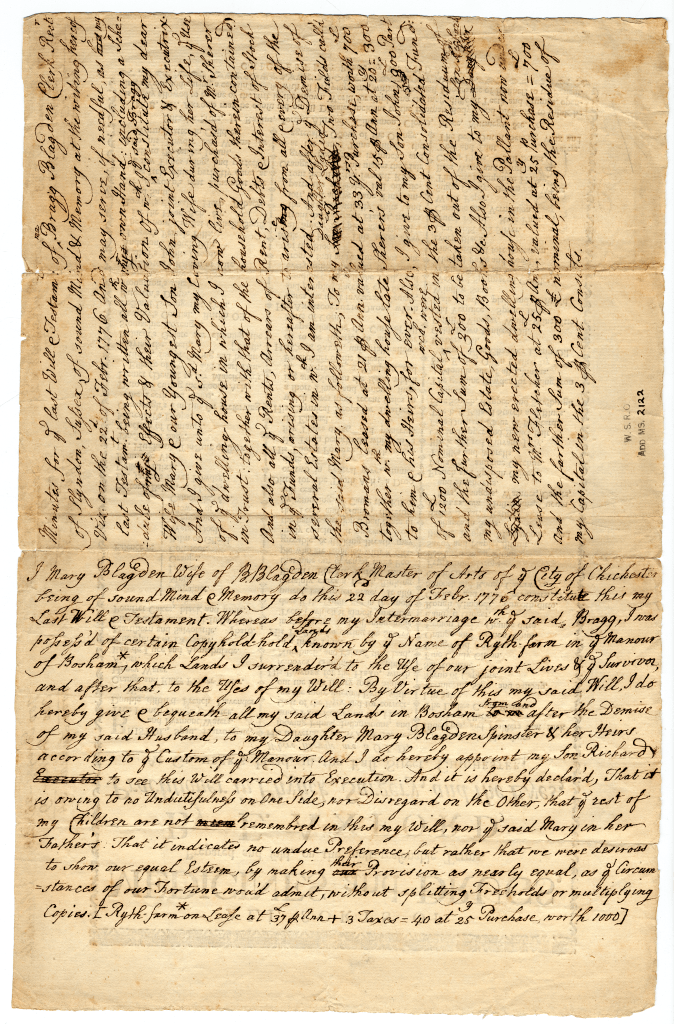 Minutes for yͤ last Will & Testam.ᵗ of Bragg Blagden Clerk Rectͬ
of Slyndon Sussex, of sound Mind & Memory at the writing hereof
Viz. on the 22ᵈ of Febr. 1776 And may serve if needful, as my
last Testam.ᵗ being written all wᵗʰ my own Hand, including a Sche-
-dule of my Effects & their Valuation. I yͤ said Bragg
of wͨʰ constitute my dear
Wife Mary & our Youngest Son John joint Executor & Executrix
And I give unto yͤ sᵈ Mary my loving Wife during her Life, yͤ Use
of yͤ dwelling house in which I now live, purchased of W. Sherer
in Trust, together with that of the household Goods therein contained
And also all yͤ Rents, Arrears of Rent, Debts & Interest of Stock
in yͤ Funds, arising or hereafter to arise from all & every of the
several Estates in wͨʰ I am interested. And after yͤ Demise of
the said Mary, as followeth, To my Daughter Two Fields call'd
Bromans leased at 21 £ p Ann valued at 33 yͬˢ Purchase, worth 700
together wᵗʰ my dwelling house late Sherer's val. 15 £ p Ann at 20 = 300
to him & his Heirs, for ever. Also I give to my Son John 900 part
of £1200 Nominal Capital, vested in the 3 p Cent Consolidated Fund,
and the further Sum of 300 to be taken out of the Residuum of
my undisposed Estate, Goods, Books &c. Also I give to my Daughter
my new erected dwelling house in the Pallant now under
Lease to Wͫ Fletcher at 25 £ p Ann, valued at 25 purchase = 700
and the farther Sum of 300 £ nominal, being the Residue of
my Capital in the 3 p Cent Consols.
W.S.R.O
Add MS. 2122
I Mary Blagden Wife of B Blagden Clerk, Master of Arts of yͤ City of Chichester
being of sound Mind & Memory do this 22 day of Febr. 1776 constitute this my
Last Will & Testament. Whereas before my Intermarriage wᵗʰ yͤ said, Bragg, I was
possess'd of certain Copyhold hold Lands known by yͤ Name of Ryth-farm in yͤ Manour
of Bosham*, which Lands I surrender'd to the Use of our joint Lives & yͤ Survivor,
and after that, to the Uses of my Will: By Virtue of this my said Will, I do
hereby give & bequeath all my said Lands in Bosham from and after the Demise
of my said Husband, to my Daughter Mary Blagden Spinster & her Heirs
according to yͤ Custom of yͤ Manour. And I do hereby appoint my Son Richard
Executor to see this Will carried into Execution. And it is hereby declar'd, That it
is owing to no Undutifulness on One Side, nor Disregard on the Other, that yͤ rest of
my Children are not remembred in this my Will, nor yͤ said Mary in her
Father's: That it indicates no undue Preference, but rather that we were desirous
to show our equal Esteem, by making their our Provision as nearly equal, as yͤ Circum
=stances of our Fortune wou'd admit, without splitting Freeholds or multiplying
Copies. [Ryth-farm* on Lease at £37 p Ann + 3 Taxes = 40 at 25 yͬ Purchase worth 1000]